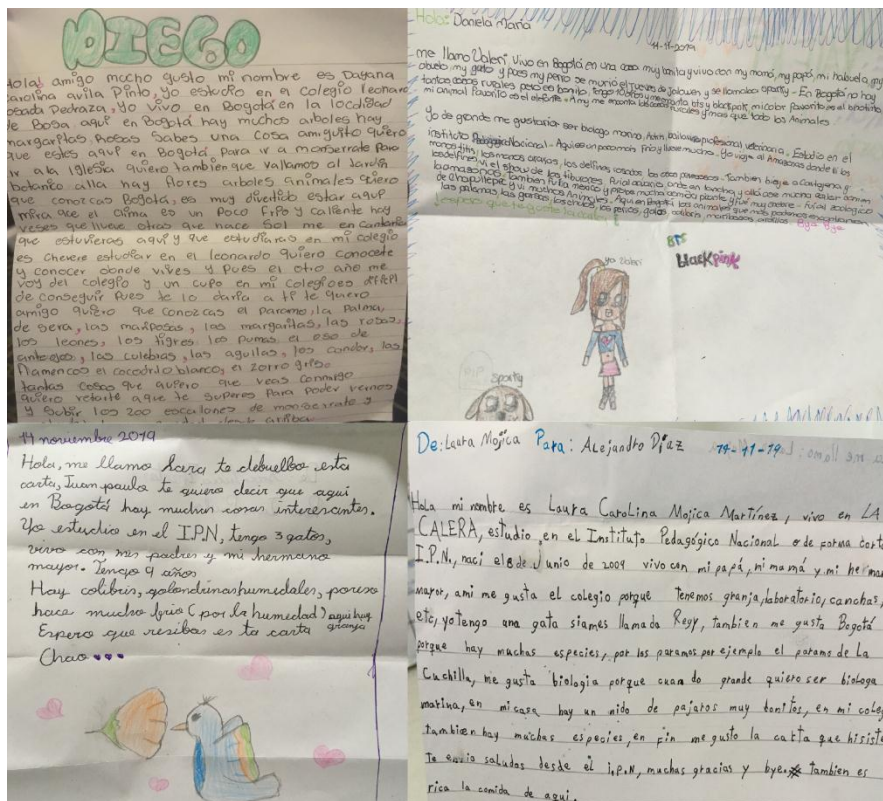 DIEGO
Hola! amigo mucho gusto mi nombre es Dayana
carolina avila Pinto, yo estudio en el colegio leonardo
posada Pedraza, yo vivo en Bogotá en la localidad
de Bosa aquí en Bogotá hay muchos arboles hay
margaritas, Rosas Sabes una cosa amiguito quiero
que estes aquí en Bogotá. Para ir a monserrate para
ir a la iglesia quiero tambien que vallamos al Jardin
botanico alla hay flores arboles animales quiero
que conozcas Bogotá, es muy divertido estar aquí
mira ace el clima es un Poco frio y caliente hay
veses que llueve otras que nace Sol me en cantaria
que estuvieras aquí y que estudiaras en mi colegio
es chevere estudiar en el leonardo quiero conocerte
y conocer donde vives y pues el otro año me
voy del colegio y un cupo en mi colegio es dificil
de conseguir Pues te lo daria a ti te quiero
amigo quiero que conozcas el Paramo, la Palma,
de sera, las mariposas, las margaritas, las rosas,
los leones, los tigres los pumas, el oso de
anteojos, las culebras, las aguilas, los condor, los
flamencos el cocodrilo blanco, el zorro griso
tantas cosas que quiero que veas conmigo
quiero retarte a que te superes Para poder vernos
y subir los 200 escalones de monserrate y
Hola: Daniela María
14-11-2019
me llamo Valeri Vivo en Bogotá en una casa muy bonita y vivo con mi mamá, my papá, mi habuela, my
abuelo, my gato y pues my perro se murió el jueves de jalowen y se llamaba sparky - En Bogotá no hay
tantas zonas rurales pero es bonito, tengo 10 años y me encanta bts y blackpink, mi color favorito es el
mi animal favorito es el elefante. A my me encanta y mas que todo los Animales
Yo de grande me gustaria ser biologa marina, Actriz, bailarina profesional, veterinaria, Estudio en el
instituto Pedagogico Nacional. Aqui es un poco mas Frio y llueve mucho. Yo viaje al Amazonas donde vi los
monos titis, los monos los delfines rosados los osos perezosos. Tambien viaje a Cartagena y
los delfines, vi el show de los tiburones. Fui al acuario, donde en lancha y alla comi mucha
bamasonas, tambien Fui a mexico y Probé mucha comida picante y fue muy chevere. Fui al zoologico
de chapultepec y vi muchos animales. Aqui en Bogotá los animales que mas podemos encontrar son
las palomas, las garzas, los chulos, los pericos, gatos, colibris, mariposas, ardillas. Bye Bye
yo Valeri
BTS
blackpink
RIP
sparky
14 noviembre 2019
Hola, me llamo Sara te debuelbo esta
carta, Juan paula te quiero decir que aqui
en Bogotá hay muchas cosas interesantes.
Yo estudio en el I.P.N, tengo 3 gatos,
vivo con mis padres y mi hermano
mayor. Tengo 9 años
Hay colibris, golondrinas humedales, por eso
hace mucho frio (por la humedad) aqui hay
granja
Espero que resibas es ta carta
Chao...
De: Laura Mojica Para: Alejandro Díaz 14-11-19
Hola mi nombre es Laura Carolina Mojica Martínez, vivo en LA
CALERA, estudio en el Instituto Pedagógico Nacional o de forma corta
I.P.N., naci el 8 de Junio de 2009 vivo con mi papá, mi mamá y mi hermano
mayor, ami me gusta el colegio porque tenemos granja, laboratorio, canchas,
etc, yo tengo una gata siames llamada Regy, tambien me gusta Bogotá
porque hay muchas especies, por los paramos por ejemplo el paramo de La
Cuchilla, me gusta biologia porque cuando grande quiero ser biologa
marina, en mi casa hay un nido de pajaros muy bonitos, en mi colegio
tambien hay muchas especies, en fin me gusto la carta que hisiste
Te envio saludos desde el i.p.N, muchas gracias y bye. tambien es
rica la comida de aqui.